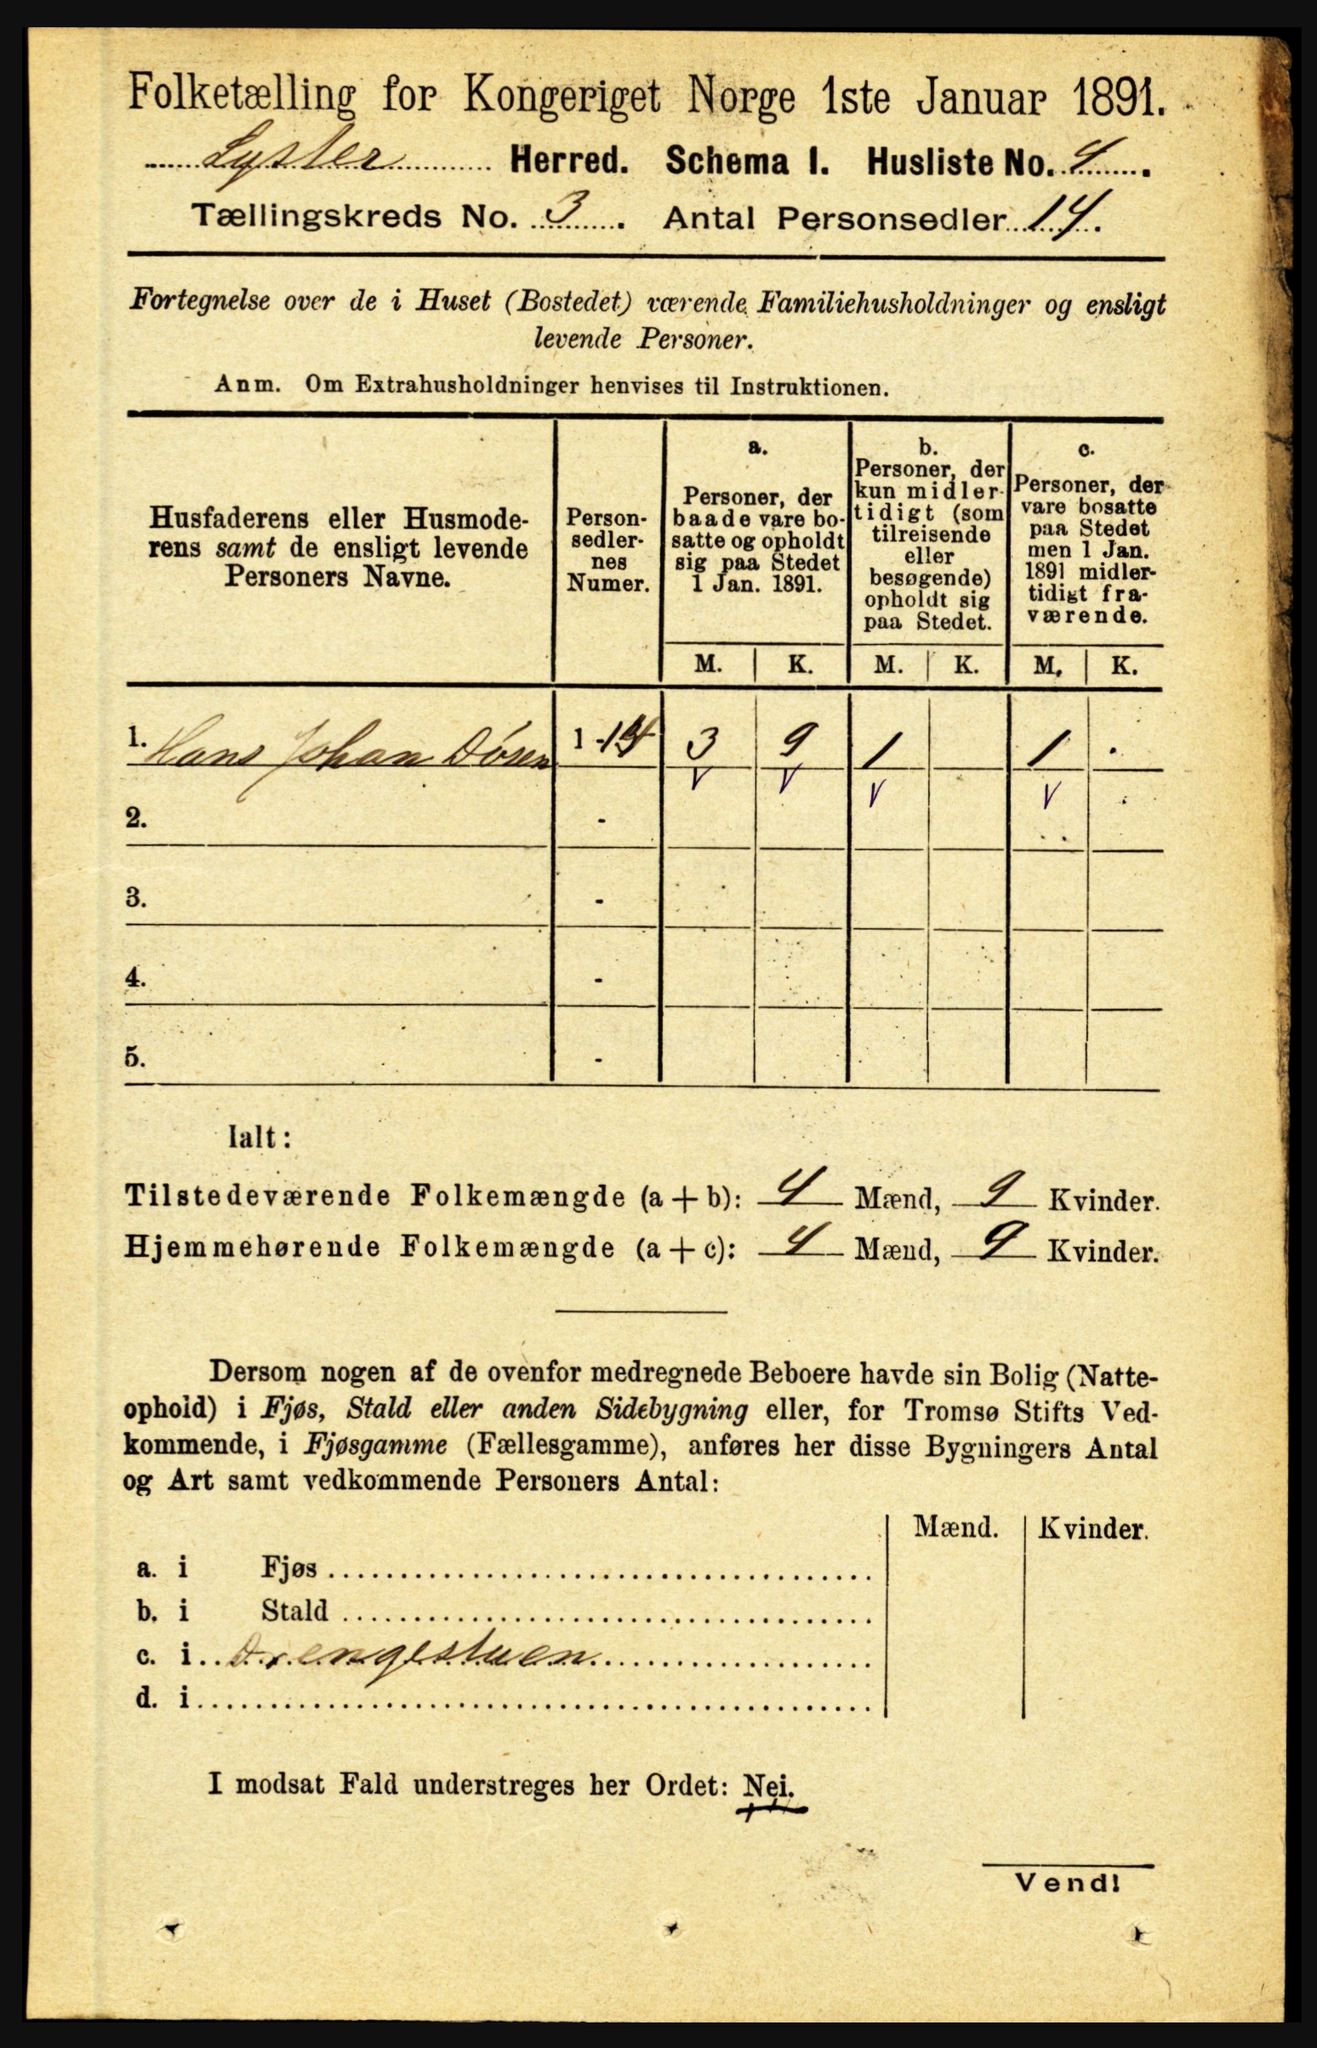 Folketælling for Kongeriget Norge 1ste Januar 1891.
Lyster Herred. Schema I. Husliste No. 4.
Tællingskreds No. 3. Antal Personsedler 14.
Fortegnelse over de i Huset (Bostedet) værende Familiehusholdninger og ensligt
levende Personer.
Anm. Om Extrahusholdninger henvises til Instruktionen.
Husfaderens eller Husmode-
rens samt de ensligt levende
Personers Navne.
Person-
sedler-
nes
Numer.
a.
Personer, der
baade vare bo-
satte og opholdt
sig paa Stedet
1 Jan. 1891.
b.
Personer, der
kun midler-
tidigt (som
tilreisende
eller
besøgende)
opholdt sig
paa Stedet.
c.
Personer, der
vare bosatte
paa Stedet
men 1 Jan.
1891 midler-
tidigt fra-
værende.
M. K. M. K. M. K.
1. Hans Johan Døsen 1-14 3 9 1 1 .
2. -
3. -
4. -
5. -
Ialt:
Tilstedeværende Folkemængde (a + b): 4 Mænd, 9 Kvinder.
Hjemmehørende Folkemængde (a + c): 4 Mænd, 9 Kvinder.
Dersom nogen af de ovenfor medregnede Beboere havde sin Bolig (Natte-
ophold) i Fjøs, Stald eller anden Sidebygning eller, for Tromsø Stifts Ved-
kommende, i Fjøsgamme (Fællesgamme), anføres her disse Bygningers Antal
og Art samt vedkommende Personers Antal:
Mænd. Kvinder.
a. i Fjøs
b. i Stald
c. i Drengestuen
d. i
I modsat Fald understreges her Ordet: Nei.
Vend!